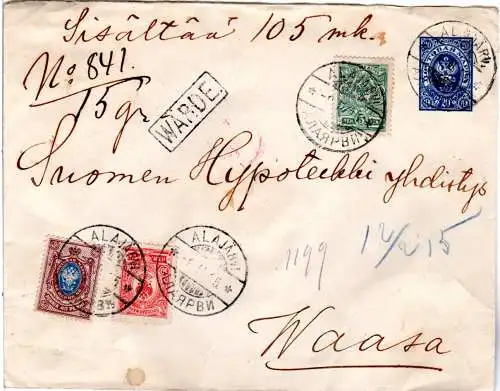 Sisältää 105 mk.
No 841.
15 gr
WARDE.
ALAJÄRVI
ALAJÄRVI
ЛАЯРВИ
Suomen Hypoteekki yhdistys
1199
12/2 15
ALAJÄRVI
ALAJÄRVI
ЛАЯРВИ
Waasa